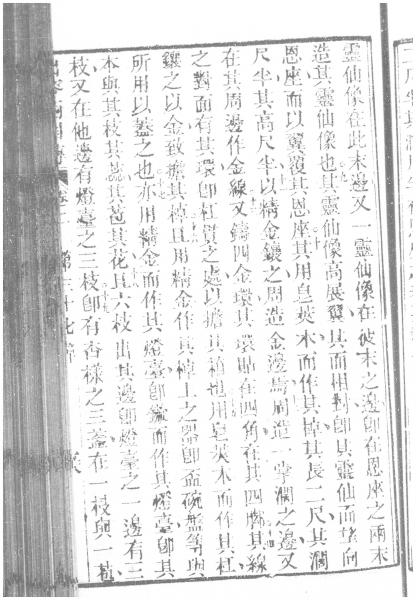 靈仙像在此末邊又一靈仙像在彼末之邊卽在恩座之兩末
造其靈仙像也其靈仙像高展翼其面相對卽其靈仙面皆向
恩座而以翼覆其恩座其用皂莢木而作其棹其長二尺其濶
尺半其高尺半以精金鑲之周造金邊焉周造一掌濶之邊又
在其周邊作金線又鑄四金環其環貼在四角在其四脚其線
之對面有其環卽杠貫之處以擔其棹也用皂莢木而作其杠
鑲之以金致擔其棹且用精金作其棹上之器卽盃碗盤等與
所用以蓋之也亦用精金而作其燈臺卽而作其燈臺卽其
本與其枝其其苞其花且六枝出其邊卽燈臺之一邊有三
枝又在他邊有燈臺之三枝卽有杏樣之三在一枝與一苞